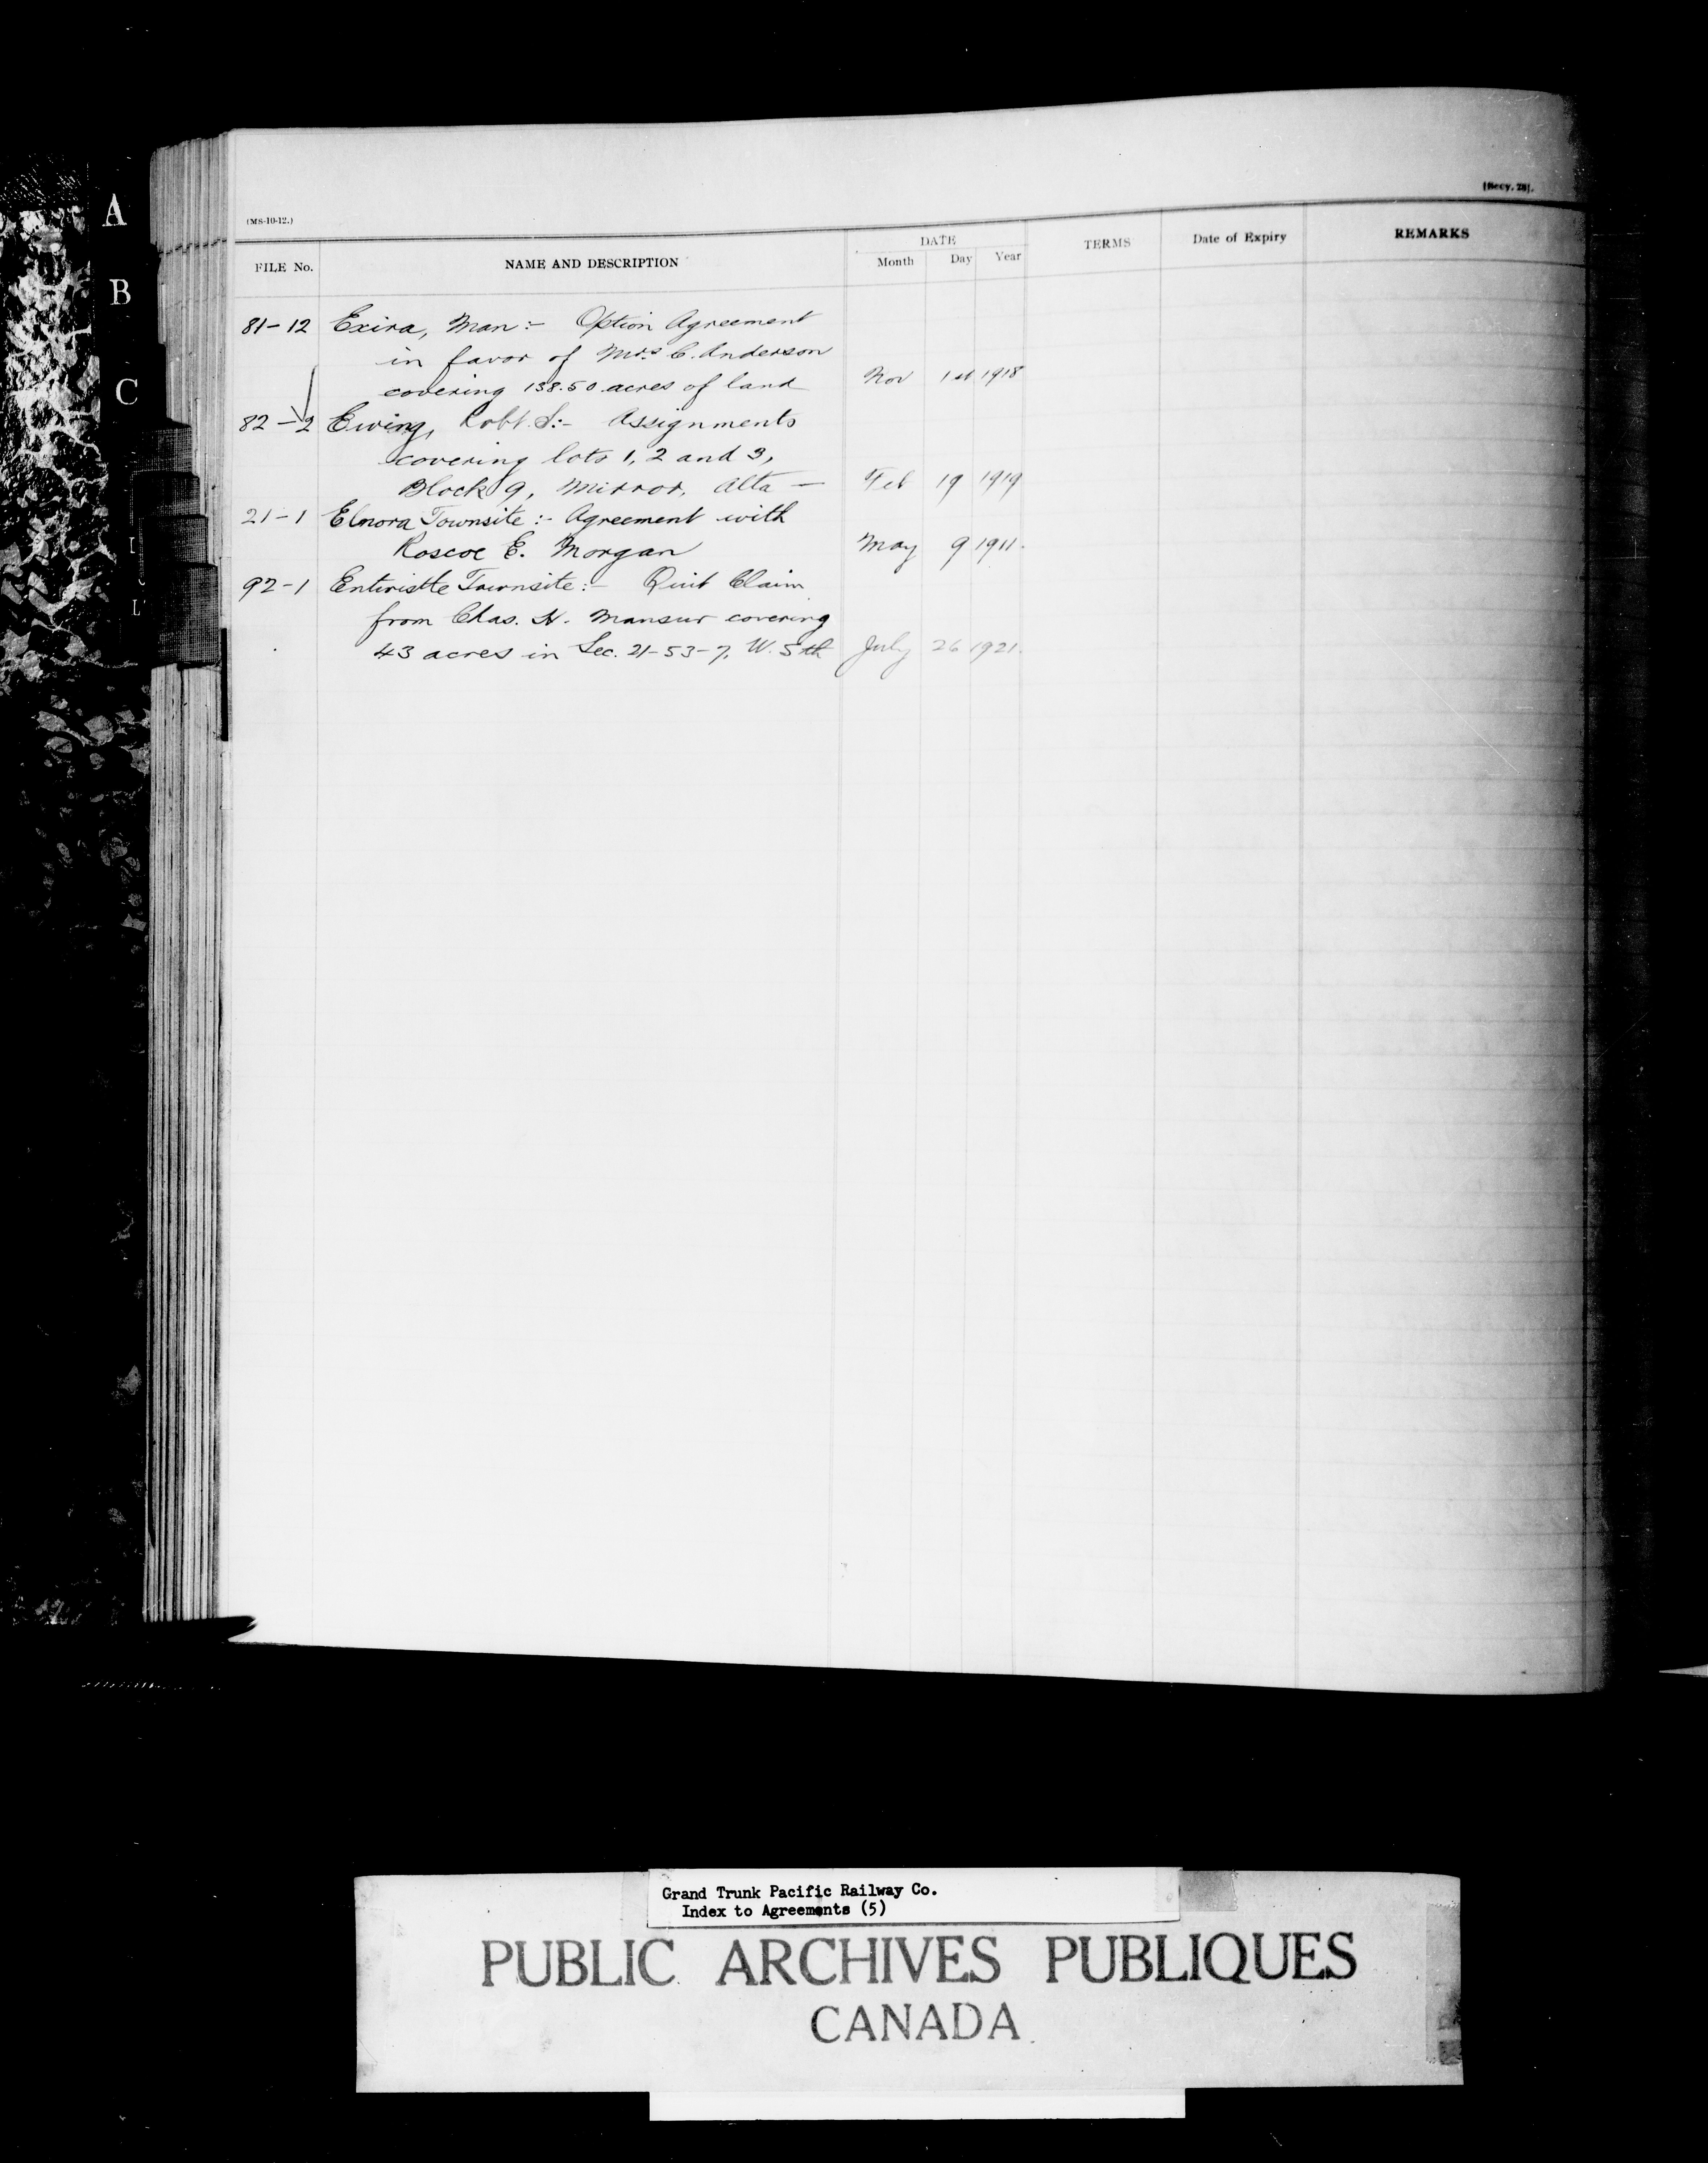 A
B
C
(MS-10-12.)
[Recy. 28].
FILE No. NAME AND DESCRIPTION DATE Month Day Year TERMS Date of Expiry REMARKS
81-12 Exira, Man:- Option Agreement
in favor of Mrs C. Anderson
covering 138.50 acres of land Nov 1st 1918
82-2 Ewing, Robt. S:- Assignments
covering lots 1, 2 and 3,
Block 9, Mirror, Alta — Feb 19 1919
21-1 Elnora Townsite:- Agreement with
Roscoe E. Morgan May 9 1911.
92-1 Entwistle Townsite:- Quit Claim
from Chas. N. Mansur covering
43 acres in Sec. 21-53-7, W. 5th July 26 1921.
Grand Trunk Pacific Railway Co.
Index to Agreements (5)
PUBLIC ARCHIVES PUBLIQUES
CANADA